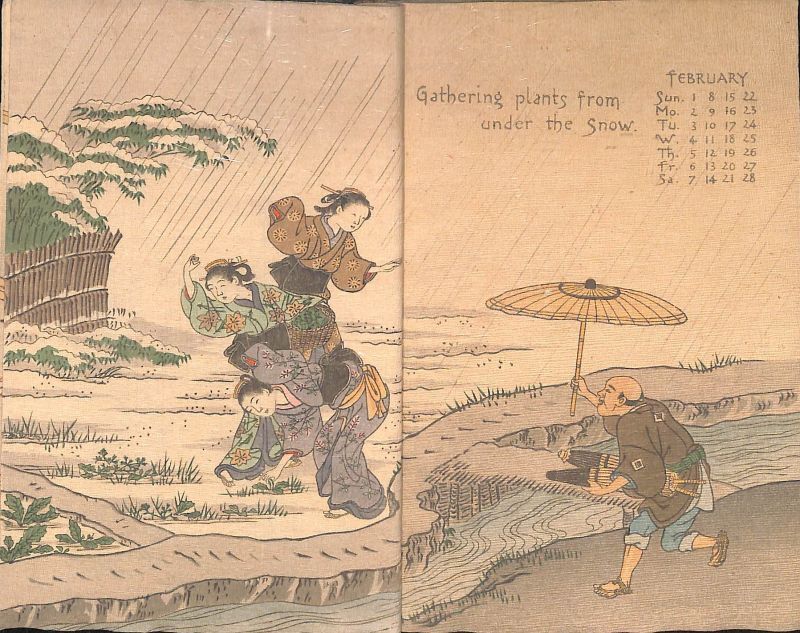 Gathering plants from
under the Snow.
FEBRUARY
Sun. 1 8 15 22
Mo. 2 9 16 23
Tu. 3 10 17 24
W. 4 11 18 25
Th. 5 12 19 26
Fr. 6 13 20 27
Sa. 7 14 21 28